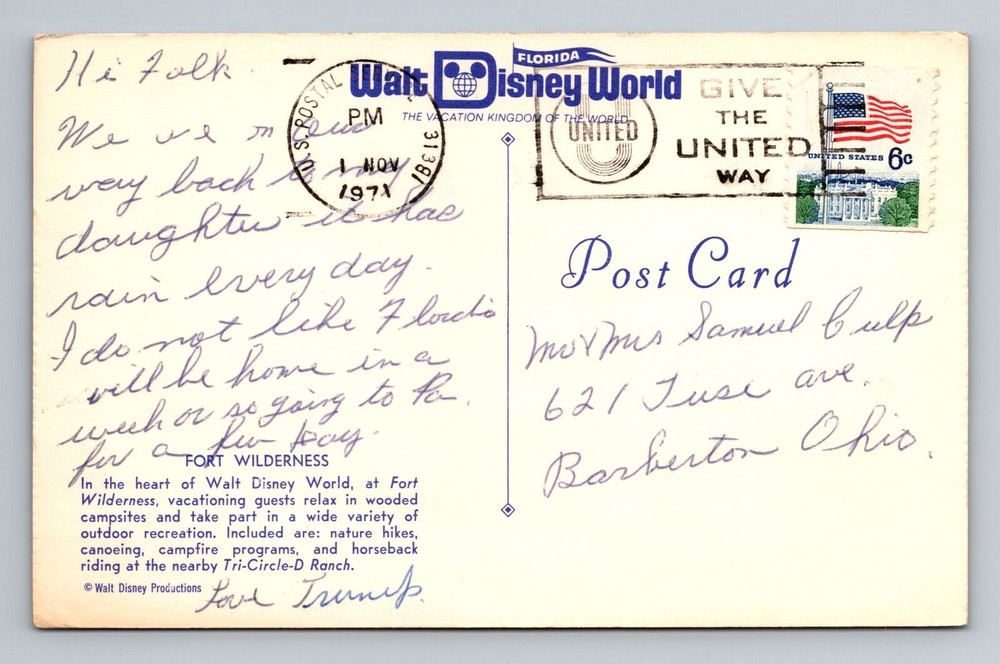 Hi Folk
We we on our
way back to my
daughter it has
rain every day.
I do not like Florida
will be home in a
week or so going to Pa.
for a few Day.
FORT WILDERNESS
In the heart of Walt Disney World, at Fort
Wilderness, vacationing guests relax in wooded
campsites and take part in a wide variety of
outdoor recreation. Included are: nature hikes,
canoeing, campfire programs, and horseback
riding at the nearby Tri-Circle-D Ranch.
© Walt Disney Productions
Love
FLORIDA
Walt Disney World
THE VACATION KINGDOM OF THE WORLD
U.S. POSTAL
PM
1 NOV
1971
UNITED
GIVE
THE
UNITED
WAY
UNITED STATES 6c
Post Card
Mr & Mrs Samuel Culp
621 ave.
Barberton Ohio.